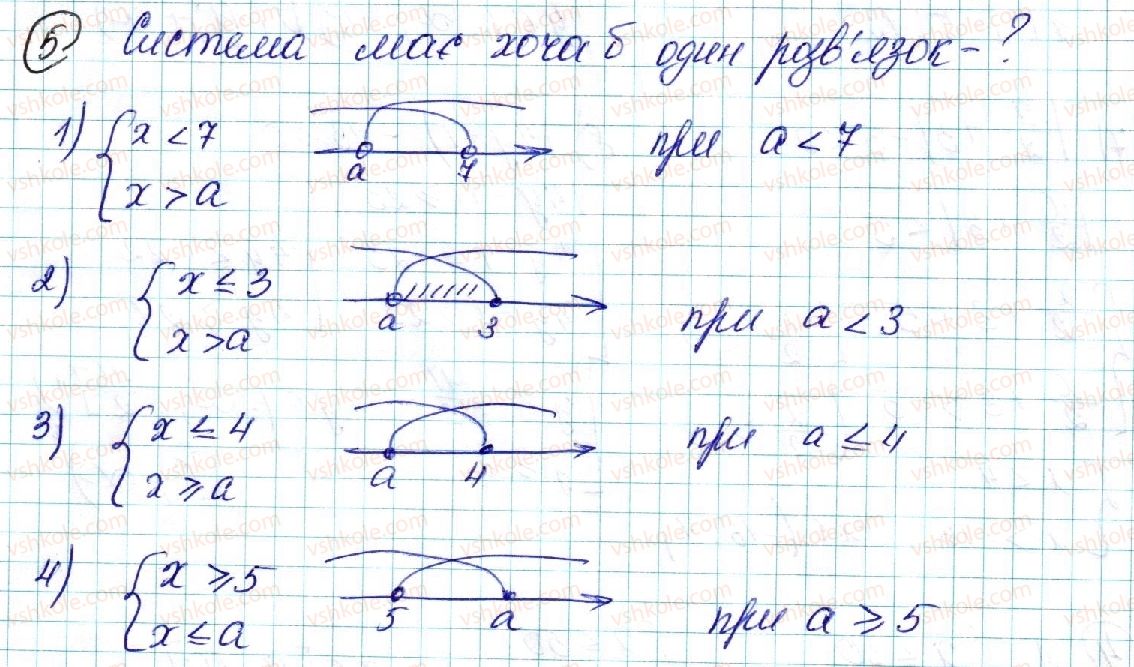 5 Система має хоча б один розв'язок - ?
1) { x < 7
x > a
a 7
при a < 7
2) { x ≤ 3
x > a
a 3
при a < 3
3) { x ≤ 4
x ≥ a
a 4
при a ≤ 4
4) { x ≥ 5
x ≤ a
5 a
при a ≥ 5
vshkole.com